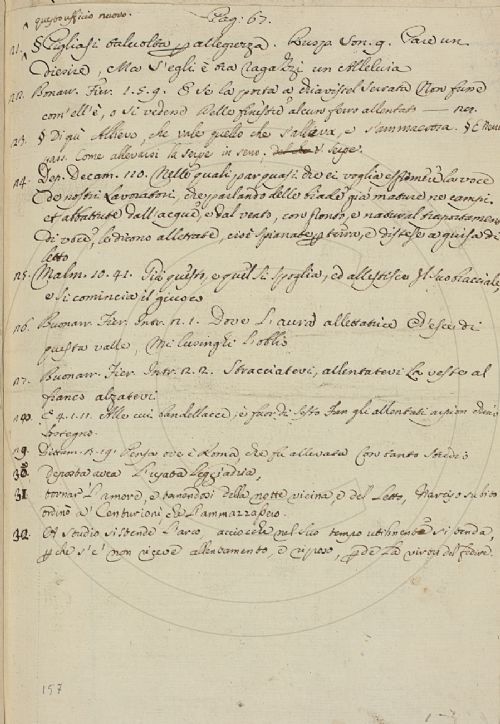 questo ufficio nuovo.
Pag. 67.
21. § Pigliasi talvolta allegrezza. Burch. Son. 9. Fare un
dicrise, Ma s'egli è tra ragazzi un Alleluia
22. Buonar. Fier. 1. 5. 9. E se la porta a chiavistel serrata Non fune
com'ell'è, o si vedene Nelle finestre alcun ferro allentato
23. § Di quì Allievo, che vale quello che s'alleva, e s'ammaestra. §
Come allevarsi la serpe in seno. Serpe.
24. Dep. Decam. 110. Nelle quali par quasi che ci voglia esprimere la voce
de nostri Lavoratori, che parlando delle biade già mature ne campi,
et abbattute dall'acque, e dal vento, con pronto, e natural trasportamento
di voce, le dicono allettate, cioè spianate terra, e distese a guisa di
letto
25. Malm. 10. 41. Più questi, e quel si spoglia, ed allestisce Il suo
e si comincia il giuoco
26. Buonar. Fier. Intr. 2. 1. Dove L'aura allettatrice Desta di
questa valle, Mi lusinghi L'oblio
27. Buonar. Fier. Intr. 2. 2. Stracciatevi, allentatevi La veste al
fianco alzatevi
E 4. 1. 11. Alle cui bandellacce, e fuor di sesto Fan gli allentati arpioni
sostegno.
29. Dittam. 2. 19. Pensa ove è Roma, che fu allevata Con tanto
30. deposta avea L'usata Leggiadria,
31. tornar L'amore, e temendosi della notte vicina, e del Letto, Narciso subito
ordinò a' Centurioni, che L'ammazzassero.
32. A studio si stende L'arco, acciocchè nel suo tempo utilmente si tenda,
che s'e' non riceve allentamento, e riposo, perde La virtù del fedire.
157